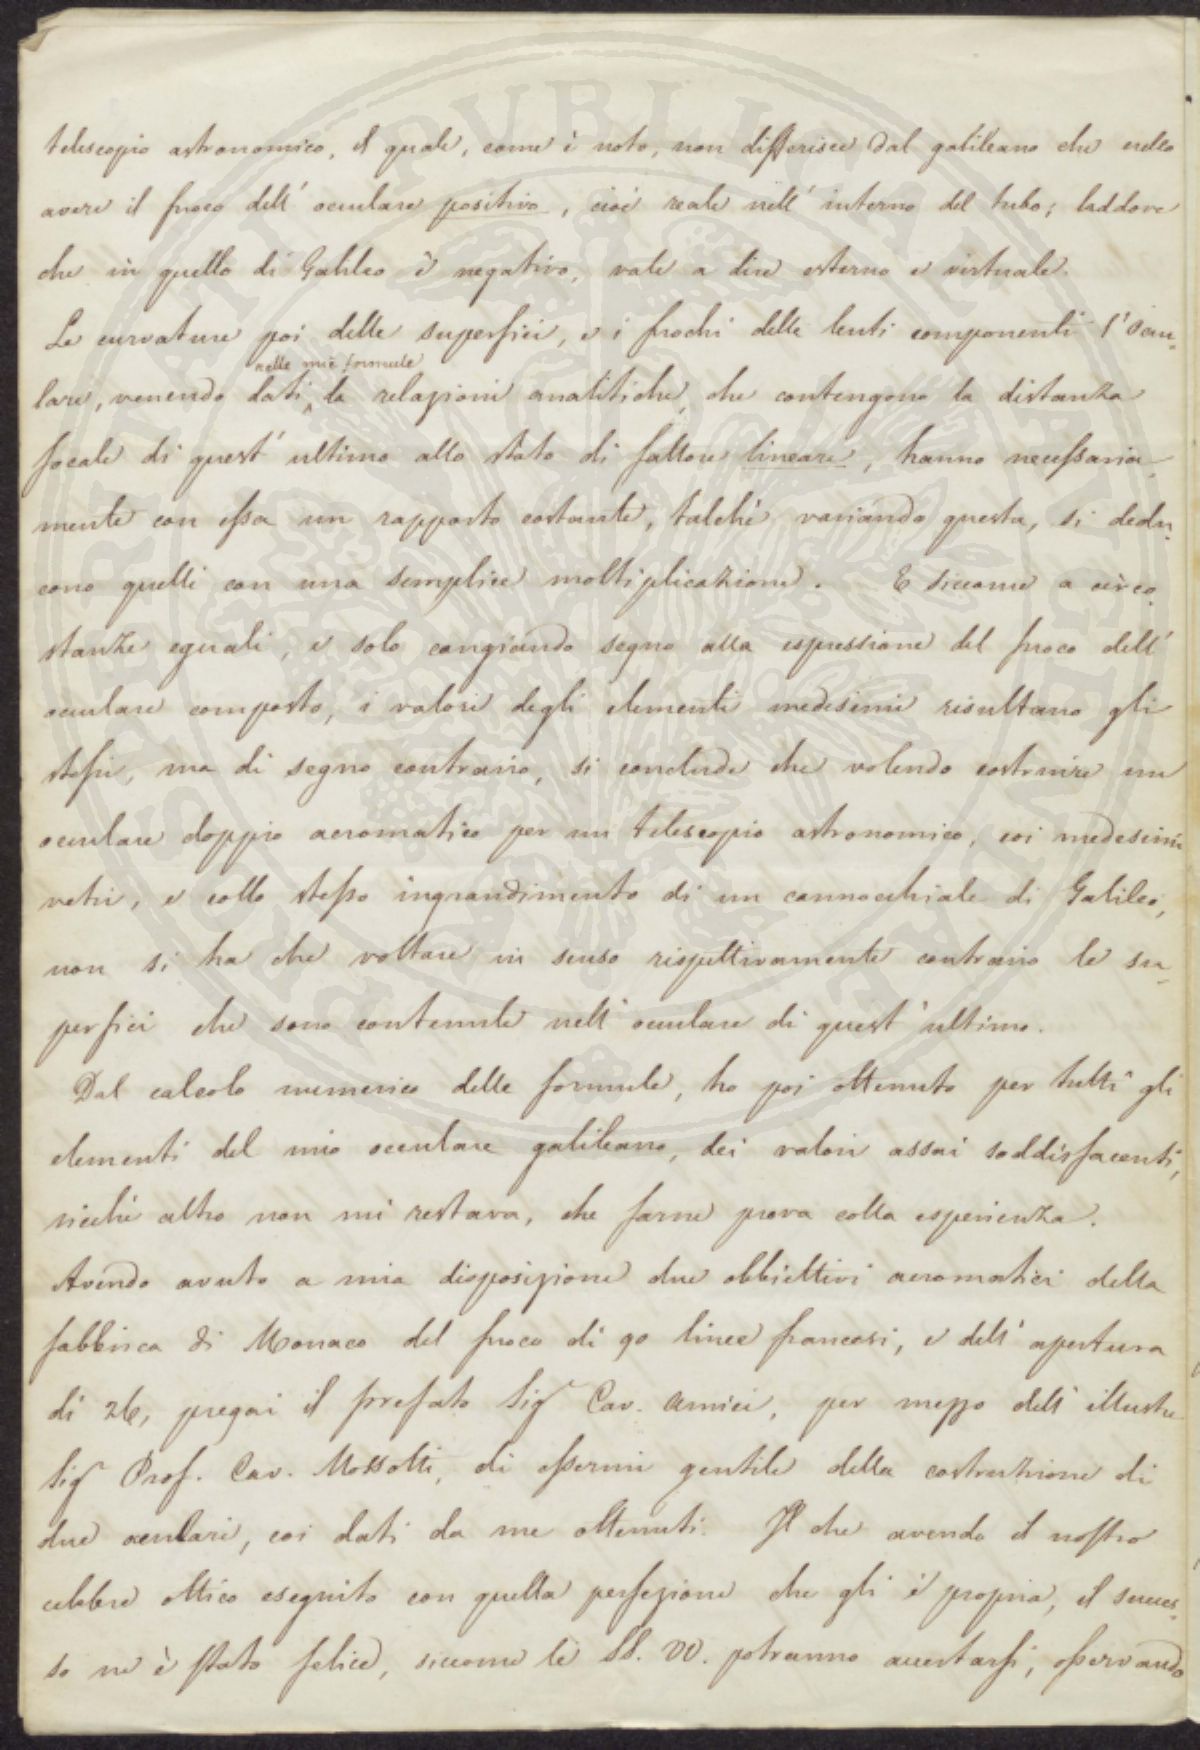 telescopio astronomico, il quale, come è noto, non differisce dal galileano che nello
avere il fuoco dell' oculare positivo, cioè reale nell' interno del tubo; laddove
che in quello di Galileo è negativo, vale a dire esterno e virtuale.
Le curvature poi delle superfici, e i fuochi delle lenti componenti l'ocu-
nelle mie formule
lare, venendo dati da relazioni analitiche, che contengono la distanza
focale di quest' ultimo allo stato di fattore lineare, hanno necessaria-
mente con essa un rapporto costante, talchè variando questa, si dedu-
cono quelli con una semplice moltiplicazione. E siccome a circo-
stanze eguali, e solo cangiando segno alla espressione del fuoco dell'
oculare composto, i valori degli elementi medesimi risultano gli
stessi, ma di segno contrario, si conclude che volendo costruire un
oculare doppio acromatico per un telescopio astronomico, coi medesimi
vetri, e collo stesso ingrandimento di un cannocchiale di Galileo,
non si ha che voltare in senso rispettivamente contrario le su-
perfici che sono contenute nell' oculare di quest' ultimo.
Dal calcolo numerico delle formule, ho poi ottenuto per tutti gli
elementi del mio oculare galileano, dei valori assai soddisfacenti,
sicchè altro non mi restava, che farne prova colla esperienza.
Avendo avuto a mia disposizione due obbiettivi acromatici della
fabbrica di Monaco del fuoco di 90 linee francesi, e dell' apertura
di 26, pregai il prefato Sigr Cav. Amici, per mezzo dell' illustre
Sigr Prof. Cav. Mossotti, di essermi gentile della costruzione di
due oculari, coi dati da me ottenuti. Il che avendo il nostro
celebre ottico eseguito con quella perfezione che gli è propria, il succes-
so ne è stato felice, siccome le SS. VV. potranno accertarsi, osservando